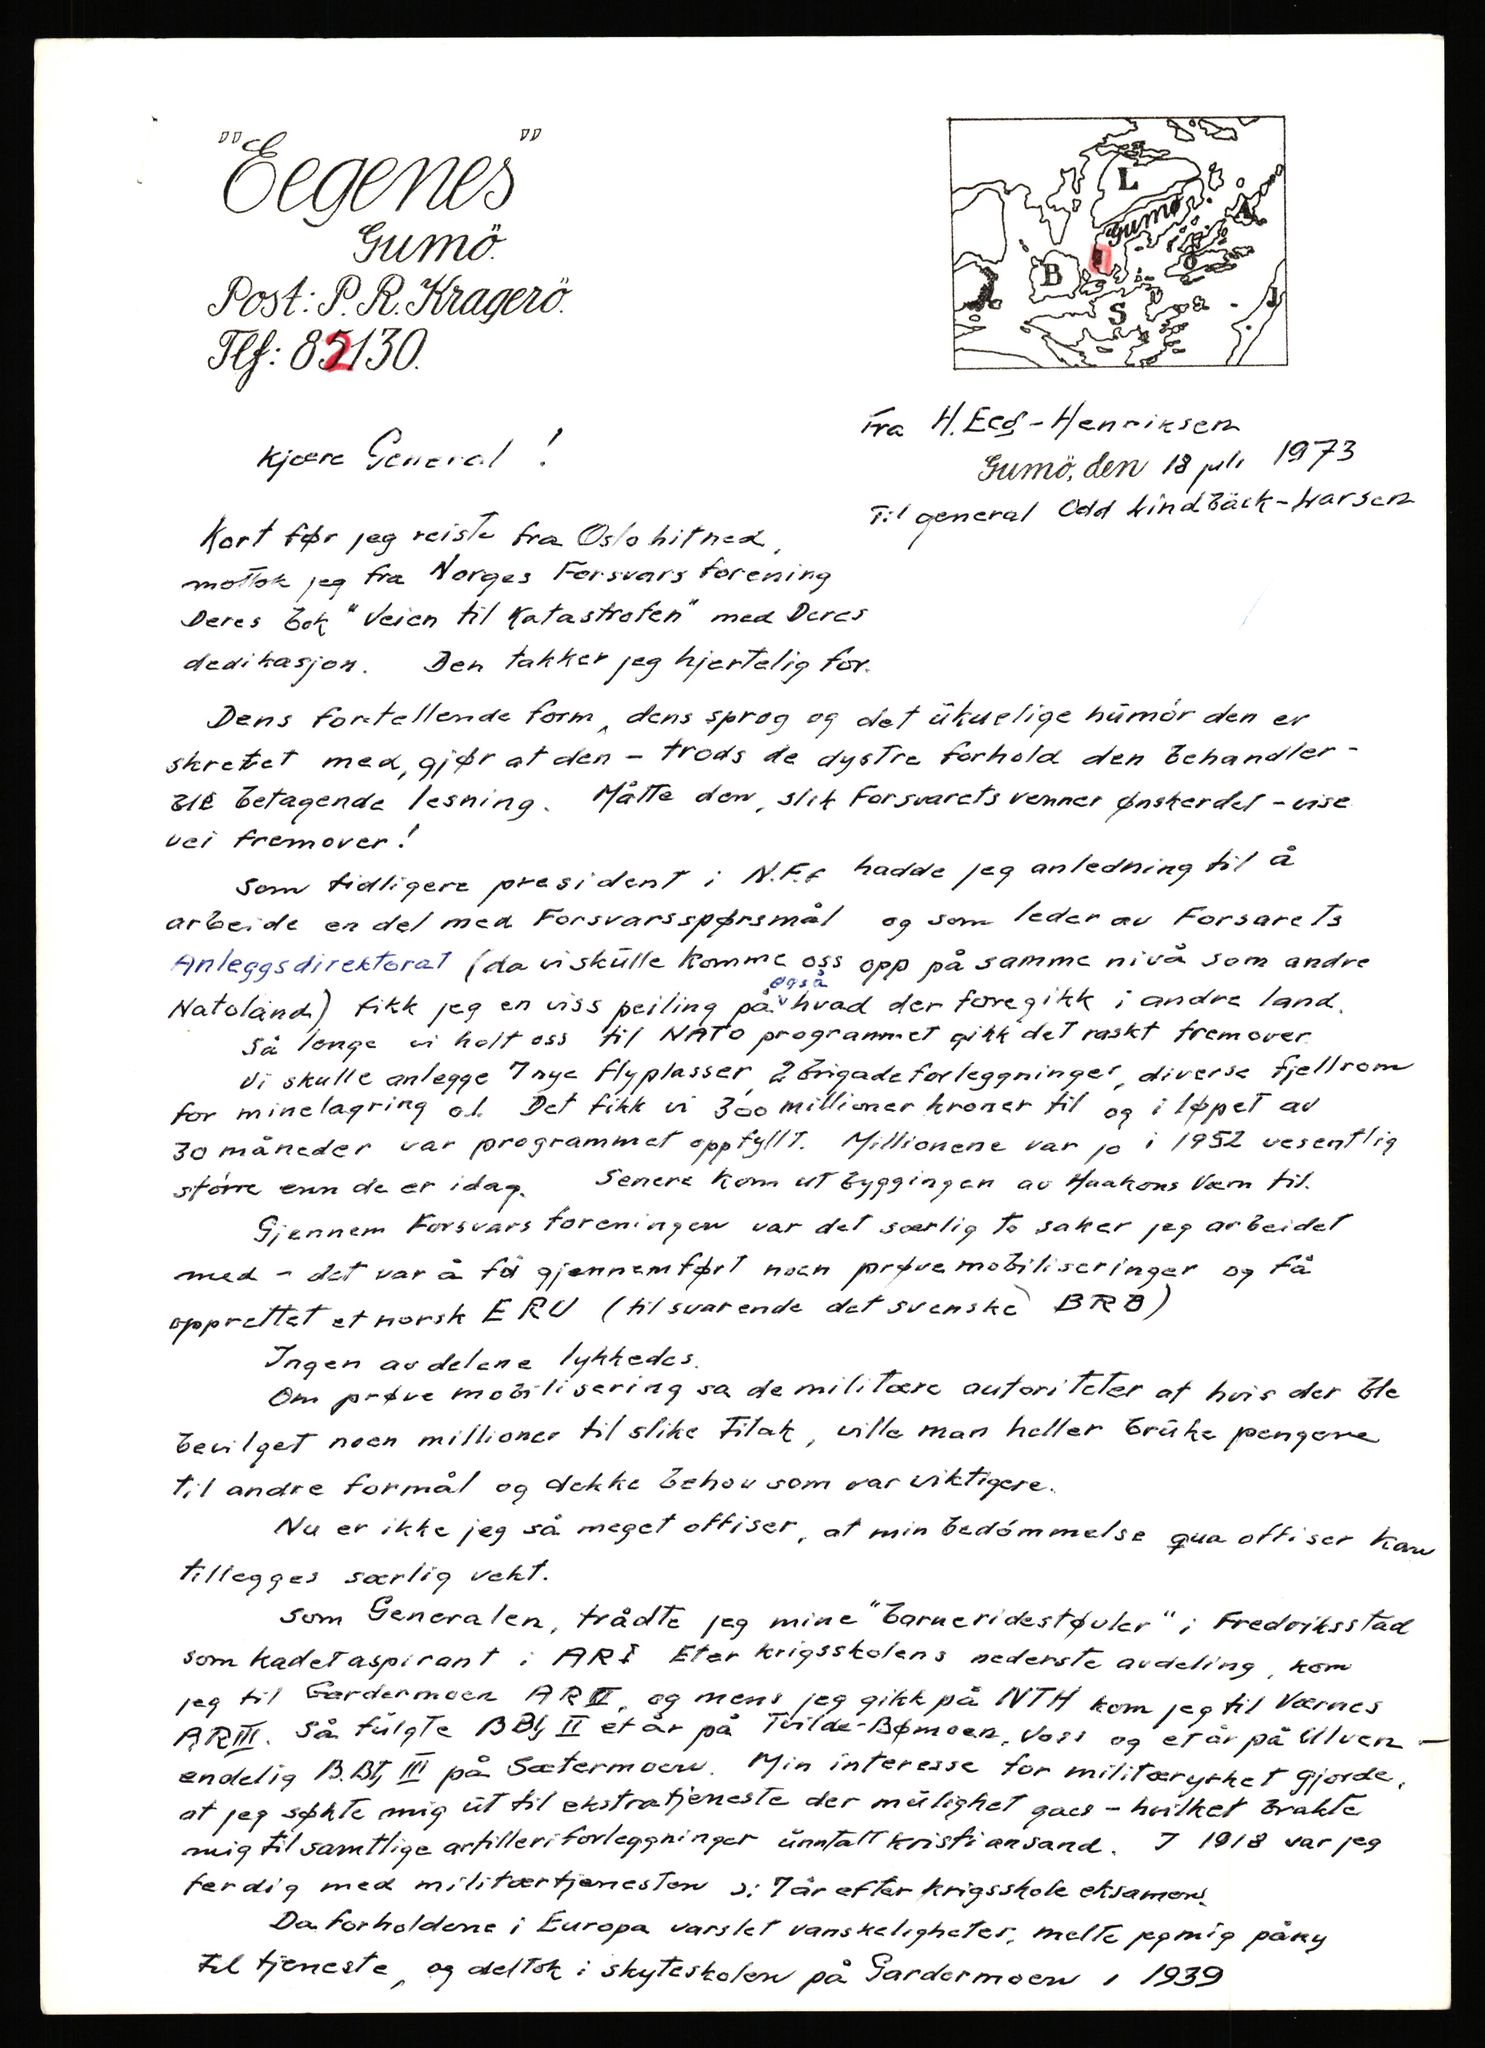 "Eegenes"
Gumö.
Post: P. R. Kragerö.
Tlf: 82130.
L
Gumø
A
B
O
S
J
Fra H. Eeg-Henriksen
Gumö, den 18 juli 1973
Til general Odd Lindbäck-Larsen
Kjære General!
Kort før jeg reiste fra Oslo hitned,
mottok jeg fra Norges Forsvarsforening
Deres bok "Veien til Katastrofen" med Deres
dedikasjon. Den takker jeg hjertelig for.
Dens fortellende form, dens sprog og det ukuelige humør den er
skrevet med, gjør at den - trods de dystre forhold den behandler -
ble betagende lesning. Måtte den, slik Forsvarets venner ønsker det - vise
vei fremover!
Som tidligere president i N.F.f hadde jeg anledning til å
arbeide en del med Forsvarsspørsmål og som leder av Forsarets
Anleggsdirektorat (da vi skulle komme oss opp på samme nivå som andre
Natoland) fikk jeg en viss peiling på også hvad der foregikk i andre land.
Så lenge vi holt oss til NATO programmet gikk det raskt fremover
Vi skulle anlegge 7 nye flyplasser, 2 brigadeforlegninger, diverse fjellrom
for minelagring o.l. Det fikk vi 300 millioner kroner til og i løpet av
30 måneder var programmet oppfyllt. Millionene var jo i 1952 vesentlig
større enn de er idag. Senere kom utbyggingen av Haakons Værn til.
Gjennem Forsvarsforeningen var det særlig to saker jeg arbeidet
med - det var å få gjennemført noen prøvemobiliseringer og få
opprettet et norsk ERU (tilsvarende det svenske BRB)
Ingen av delene lykkedes.
Om prøvemobilisering sa de militære autoriteter at hvis der ble
bevilget noen millioner til slike tiltak, ville man heller bruke pengene
til andre formål og dekke behov som var viktigere.
Nu er ikke jeg så meget offiser, at min bedømmelse qua offiser kan
tillegges særlig vekt.
Som Generalen, trådte jeg mine "barneridestøvler" i Fredriksstad
som kadetaspirant i AR I Eter krigsskolens nederste avdeling, kom
jeg til Gardermoen AR II, og mens jeg gikk på NTH kom jeg til Værnes
AR III. Så fulgte B Btj II et år på Tvilde-Bømoen, Voss og et år på Ulven -
endelig B. Btj III på Sætermoen. Min interesse for militæryrket gjorde,
at jeg søkte mig ut til ekstratjeneste der mulighet gaes - hvilket brakte
mig til samtlige artilleriforleggninger unntatt Kristiansand. I 1918 var jeg
ferdig med militærtjenesten ɔ: 7 år efter krigsskole eksamen.
Da forholdene i Europa varslet vanskeligheter, melte jeg mig påny
til tjeneste, og deltok i skyteskolen på Gardermoen i 1939